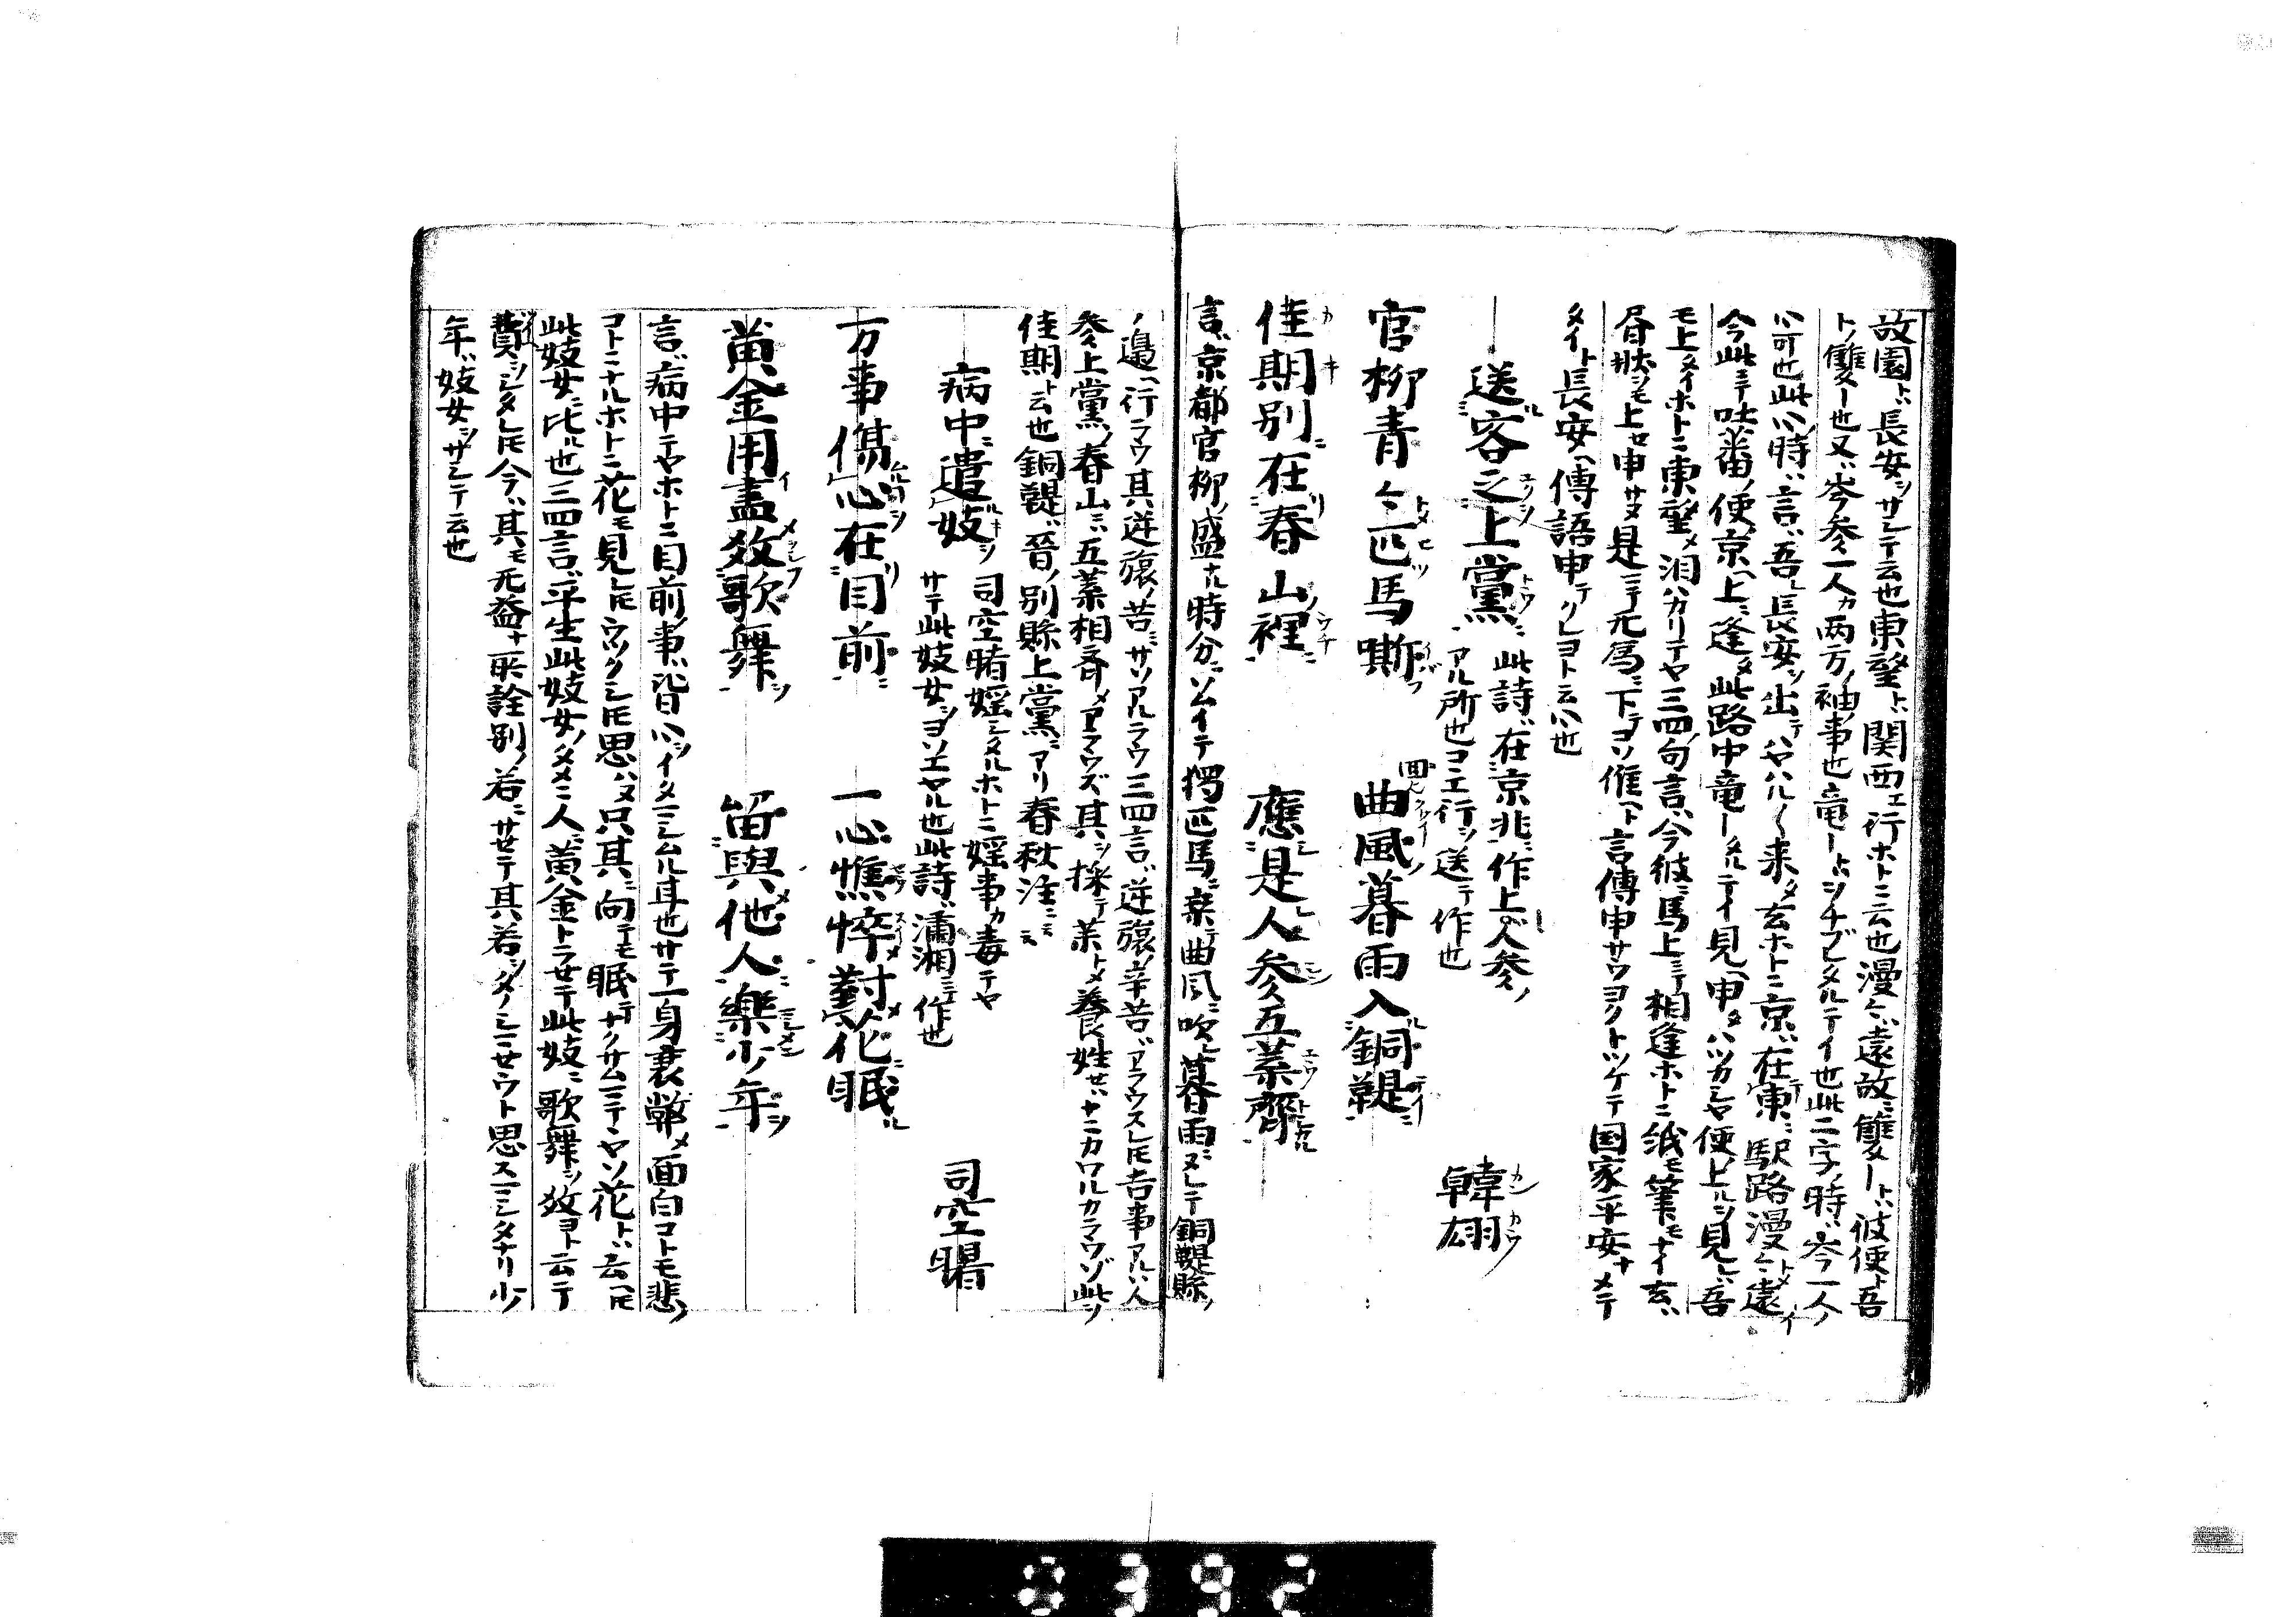 故園トハ長安ヲサシテ云也東望トハ関西エ行ホトニ云也漫々ハ遠故ニ雙ートハ彼使ト吾
トノ雙ー也又ハ岑参一人カ両方ノ袖ノ事也竜ートハシチブレタルテイ也此二字ノ時ハ岑一人ノ
ハ可也此ハ時ハ言ハ吾ハ長安ヲ出テハヤハル〱来タ玄ホトニ京ハ在東ニ駅路漫々トメ遠イ
今此ニテ吐蕃ノ使ノ京ヘ上ニ逢タ此路中竜ーメルテイ見ヘ申タハツカシヤ使ノ上ルヲ見レハ吾
モ上タイホトニ東望メ泪ハカリテヤ三四句言ハ今彼ニ馬上ニテ相逢ホトニ紙モ筆モナイ玄ハ
昏状ヲモ上セ申サヌ是ニテ先馬ニ下テヨソ傕下言傳申サウヨクトツケテ国家平安ナメテ
タイト長安ヘ傳語申テクレヨト云ハ也
送客之上黨 此詩ハ在京兆ニ作上ハ人参ノ
アル所也ココエ行ヲ送テ作也
韓翃
官柳青々匹馬嘶 曲風暮雨入銅鞮
佳期別在春山裡 應是人参五葉齊
言ハ京都官柳ノ盛ナル時分ニソムイテ獨匹馬ニ乗曲風ニ吹レ暮雨ニヌレテ銅鞮縣ノ
ノ邉ヘ行ラウ其逆旅ノ苦ニサソアルラウ三四言ハ逆旅ノ辛苦ハアラウスレ𪜈吉事アルハ人
参ハ上黨ノ春山ニハ五葉相斉メアラウズ其ヲ採テ茱トメ養姓セハナニカワルカラウゾ此ヲ
佳期ト云也銅鞮ハ晉ノ別縣上黨ニアリ春秋注ニミユ
病中遣妓 司空睹婬シタルホトニ婬事カ毒テヤ
サテ此妓女ヲヨソエヤル也此詩ハ瀟湘ニテ作也
司空曙
万事傷心在目前 一心憔悴對花眠
黄金用盡教歌舞 留與他人樂少年
言ハ病中テヤホトニ目前ノ事ハ皆心ヲイタマシムル耳也サテ一身衰弊メ面白コトモ悲ノ
コトニナルホトニ花モ見レ𪜈ウツクシ𪜈思ハヌ只其ニ向テモ眠テナクサムマテヤソ花トハ云ヘ𪜈
此妓女ニ比ル也三四言ハ平生此妓女ノタメニ人ニ黄金トラセテ此妓ニ歌舞ヲ教ヨト云テ
費ヲシタレ𪜈今ハ其モ无益ナ所詮別ノ若ニサセテ其若ヲタノシマセウト思スマシタナリ少ノ
年ハ妓女ヲサシテ云也
0392